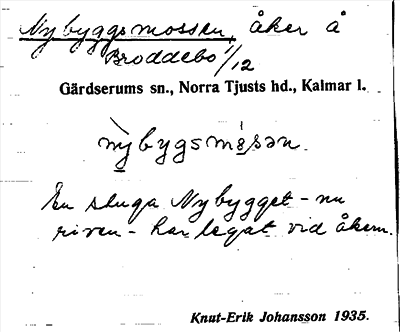 Nybyggsmossen, åker å
Broddebo 1/12
Gärdserums sn., Norra Tjusts hd., Kalmar l.
nybygsmåsən.
En stuga Nybygget - nu
riven - har legat vid åkern.
Knut-Erik Johansson 1935.